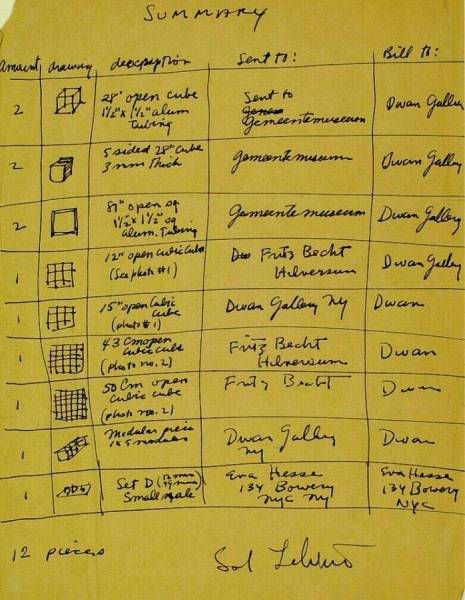 SUMMARY
Amount drawing description Sent to: Bill to:
2 28" open cube Sent to Dwan Gallery
1½" x 1½" alum Gemeentemuseum
tubing
2 5 sided 28" cube Gemeentemuseum Dwan Gallery
3 mm thick
2 open sq Gemeentemuseum Dwan Gallery
1½ x 1½" sq
alum. tubing
1 12" open cubic cube Fritz Becht Dwan Gallery
(See photo #1) Hilversum
1 15" open cubic Dwan Gallery NY Dwan
cube
(photo #1)
1 43 Cm open Fritz Becht Dwan
cubic cube Hilversum
(photo no. 2)
1 50 Cm open Fritz Becht Dwan
cubic cube
(photo no. 2)
1 Modular piece Dwan Gallery Dwan
1 x 5 modules NY
1 Set D Eva Hesse Eva Hesse
Small scale 134 Bowery 134 Bowery
NYC NY NYC
12 pieces Sol LeWitt